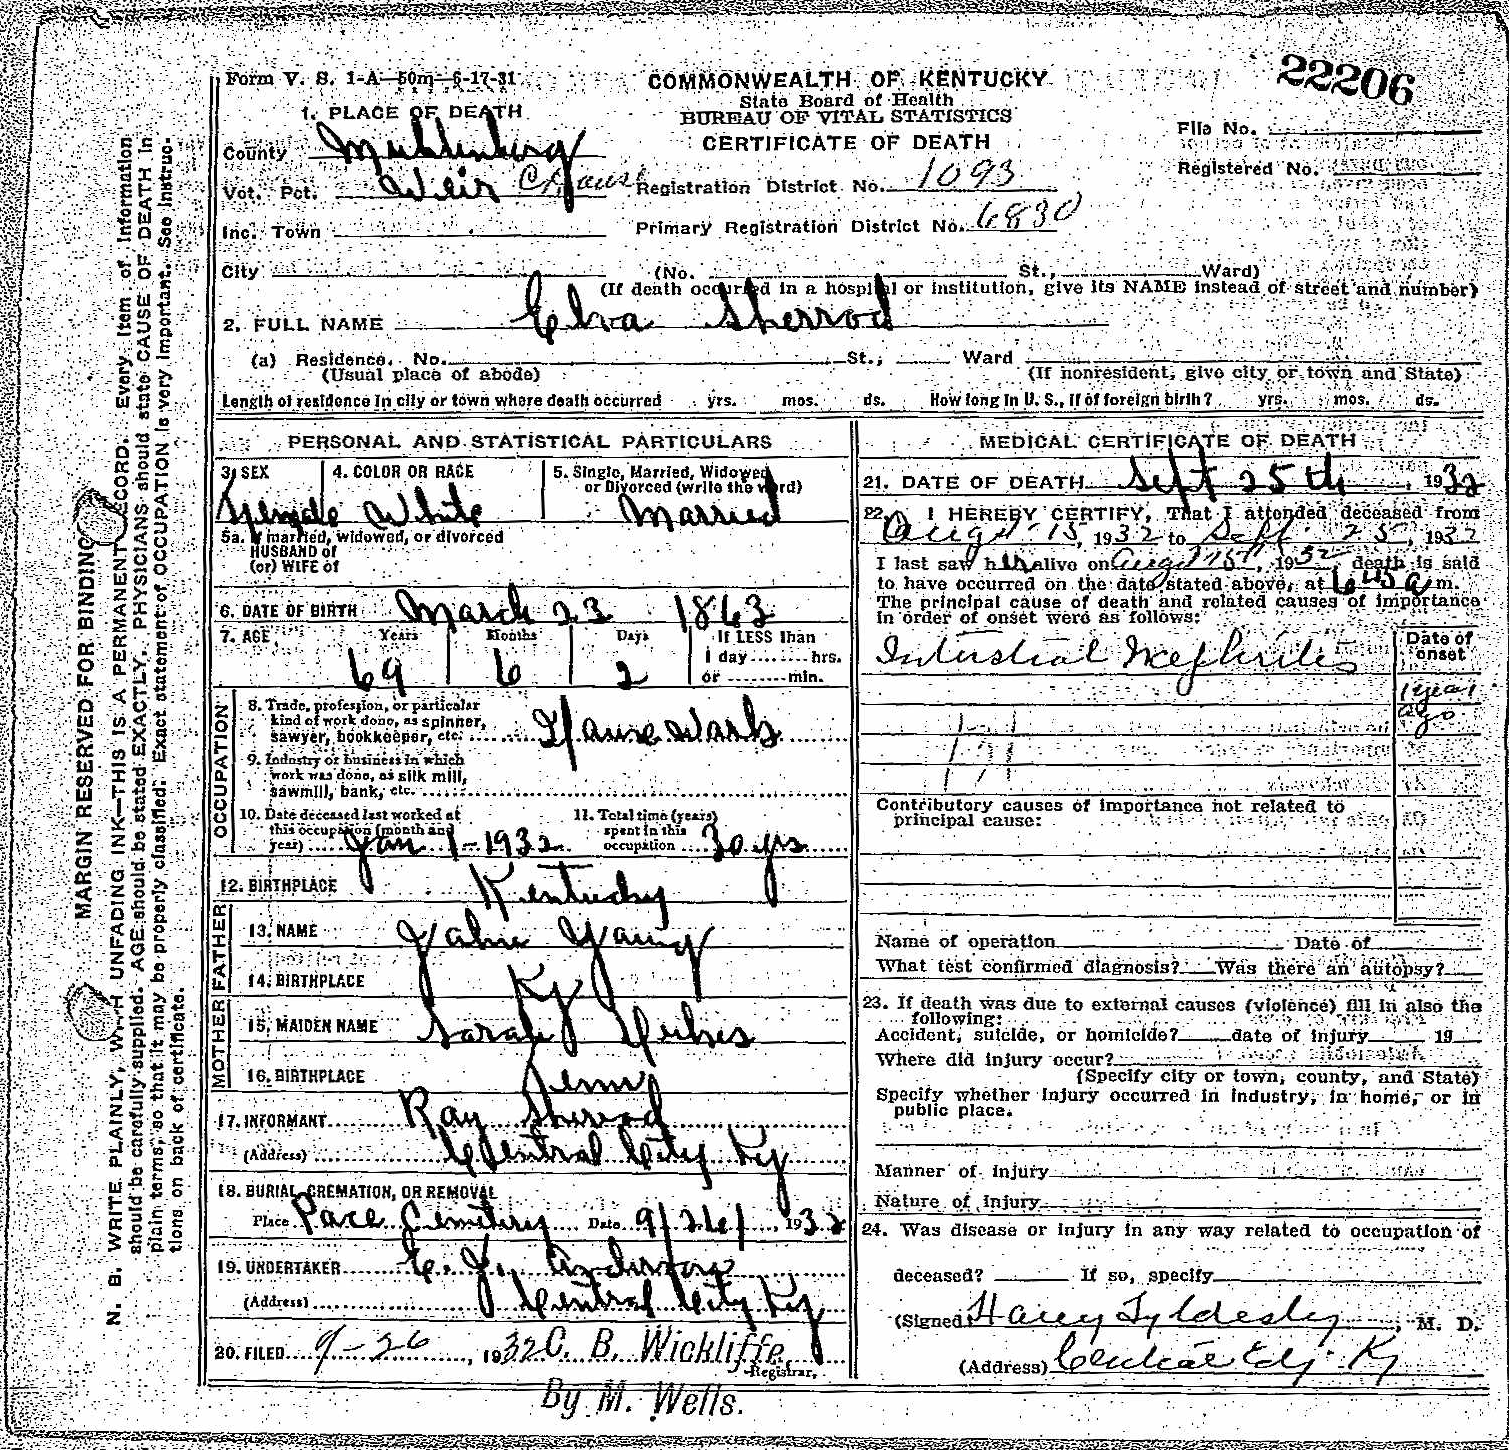 Form V. S. 1-A—50m—6-17-31
COMMONWEALTH OF KENTUCKY
22206
State Board of Health
BUREAU OF VITAL STATISTICS
CERTIFICATE OF DEATH
File No.
Registered No.
1. PLACE OF DEATH
County Muhlenberg
Vot. Pct. Weir
Registration District No. 1093
Inc. Town
Primary Registration District No. 6830
City (No. St., Ward)
(If death occurred in a hospital or institution, give its NAME instead of street and number)
2. FULL NAME Elva Sherrod
(a) Residence. No. St., Ward
(Usual place of abode) (If nonresident, give city or town and State)
Length of residence in city or town where death occurred yrs. mos. ds. How long in U. S., if of foreign birth? yrs. mos. ds.
PERSONAL AND STATISTICAL PARTICULARS
3. SEX 4. COLOR OR RACE 5. Single, Married, Widowed
or Divorced (write the word)
Female White Married
5a. If married, widowed, or divorced
HUSBAND of
(or) WIFE of
6. DATE OF BIRTH March 23 1863
7. AGE Years Months Days If LESS than
1 day hrs.
69 6 2 or min.
OCCUPATION
8. Trade, profession, or particular
kind of work done, as spinner,
sawyer, bookkeeper, etc. House Work
9. Industry or business in which
work was done, as silk mill,
sawmill, bank, etc.
10. Date deceased last worked at
this occupation (month and
year) Jan 1-1932
11. Total time (years)
spent in this
occupation 30 yrs
12. BIRTHPLACE Kentucky
FATHER
13. NAME John Young
14. BIRTHPLACE Ky
MOTHER
15. MAIDEN NAME Sarah
16. BIRTHPLACE Tenn
17. INFORMANT Ray Sherrod
(Address) Central City Ky
18. BURIAL, CREMATION, OR REMOVAL
Place Pace Cemetery Date 9/26/ 1932
19. UNDERTAKER
(Address) Central City Ky
20. FILED 9-26, 1932 C. B. Wickliffe
Registrar.
By M. Wells.
MEDICAL CERTIFICATE OF DEATH
21. DATE OF DEATH Sept 25th, 1932
22. I HEREBY CERTIFY, That I attended deceased from
Aug 15, 1932 to Sept. 25, 1932
I last saw her alive on Aug 15, 1932, death is said
to have occurred on the date stated above, at 6 45 a m.
The principal cause of death and related causes of importance
in order of onset were as follows:
Date of
onset
Interstial Nephritis
1 year
ago
131
Contributory causes of importance not related to
principal cause:
Name of operation Date of
What test confirmed diagnosis? Was there an autopsy?
23. If death was due to external causes (violence) fill in also the
following:
Accident, suicide, or homicide? date of injury 19
Where did injury occur?
(Specify city or town, county, and State)
Specify whether injury occurred in industry, in home, or in
public place.
Manner of injury
Nature of injury
24. Was disease or injury in any way related to occupation of
deceased? If so, specify
(Signed) Harry Tyldesley, M. D.
(Address) Central City Ky
MARGIN RESERVED FOR BINDING
N. B. WRITE PLAINLY, WITH UNFADING INK—THIS IS A PERMANENT RECORD. Every item of information
should be carefully supplied. AGE should be stated EXACTLY. PHYSICIANS should state CAUSE OF DEATH in
plain terms, so that it may be properly classified. Exact statement of OCCUPATION is very important. See instruc-
tions on back of certificate.